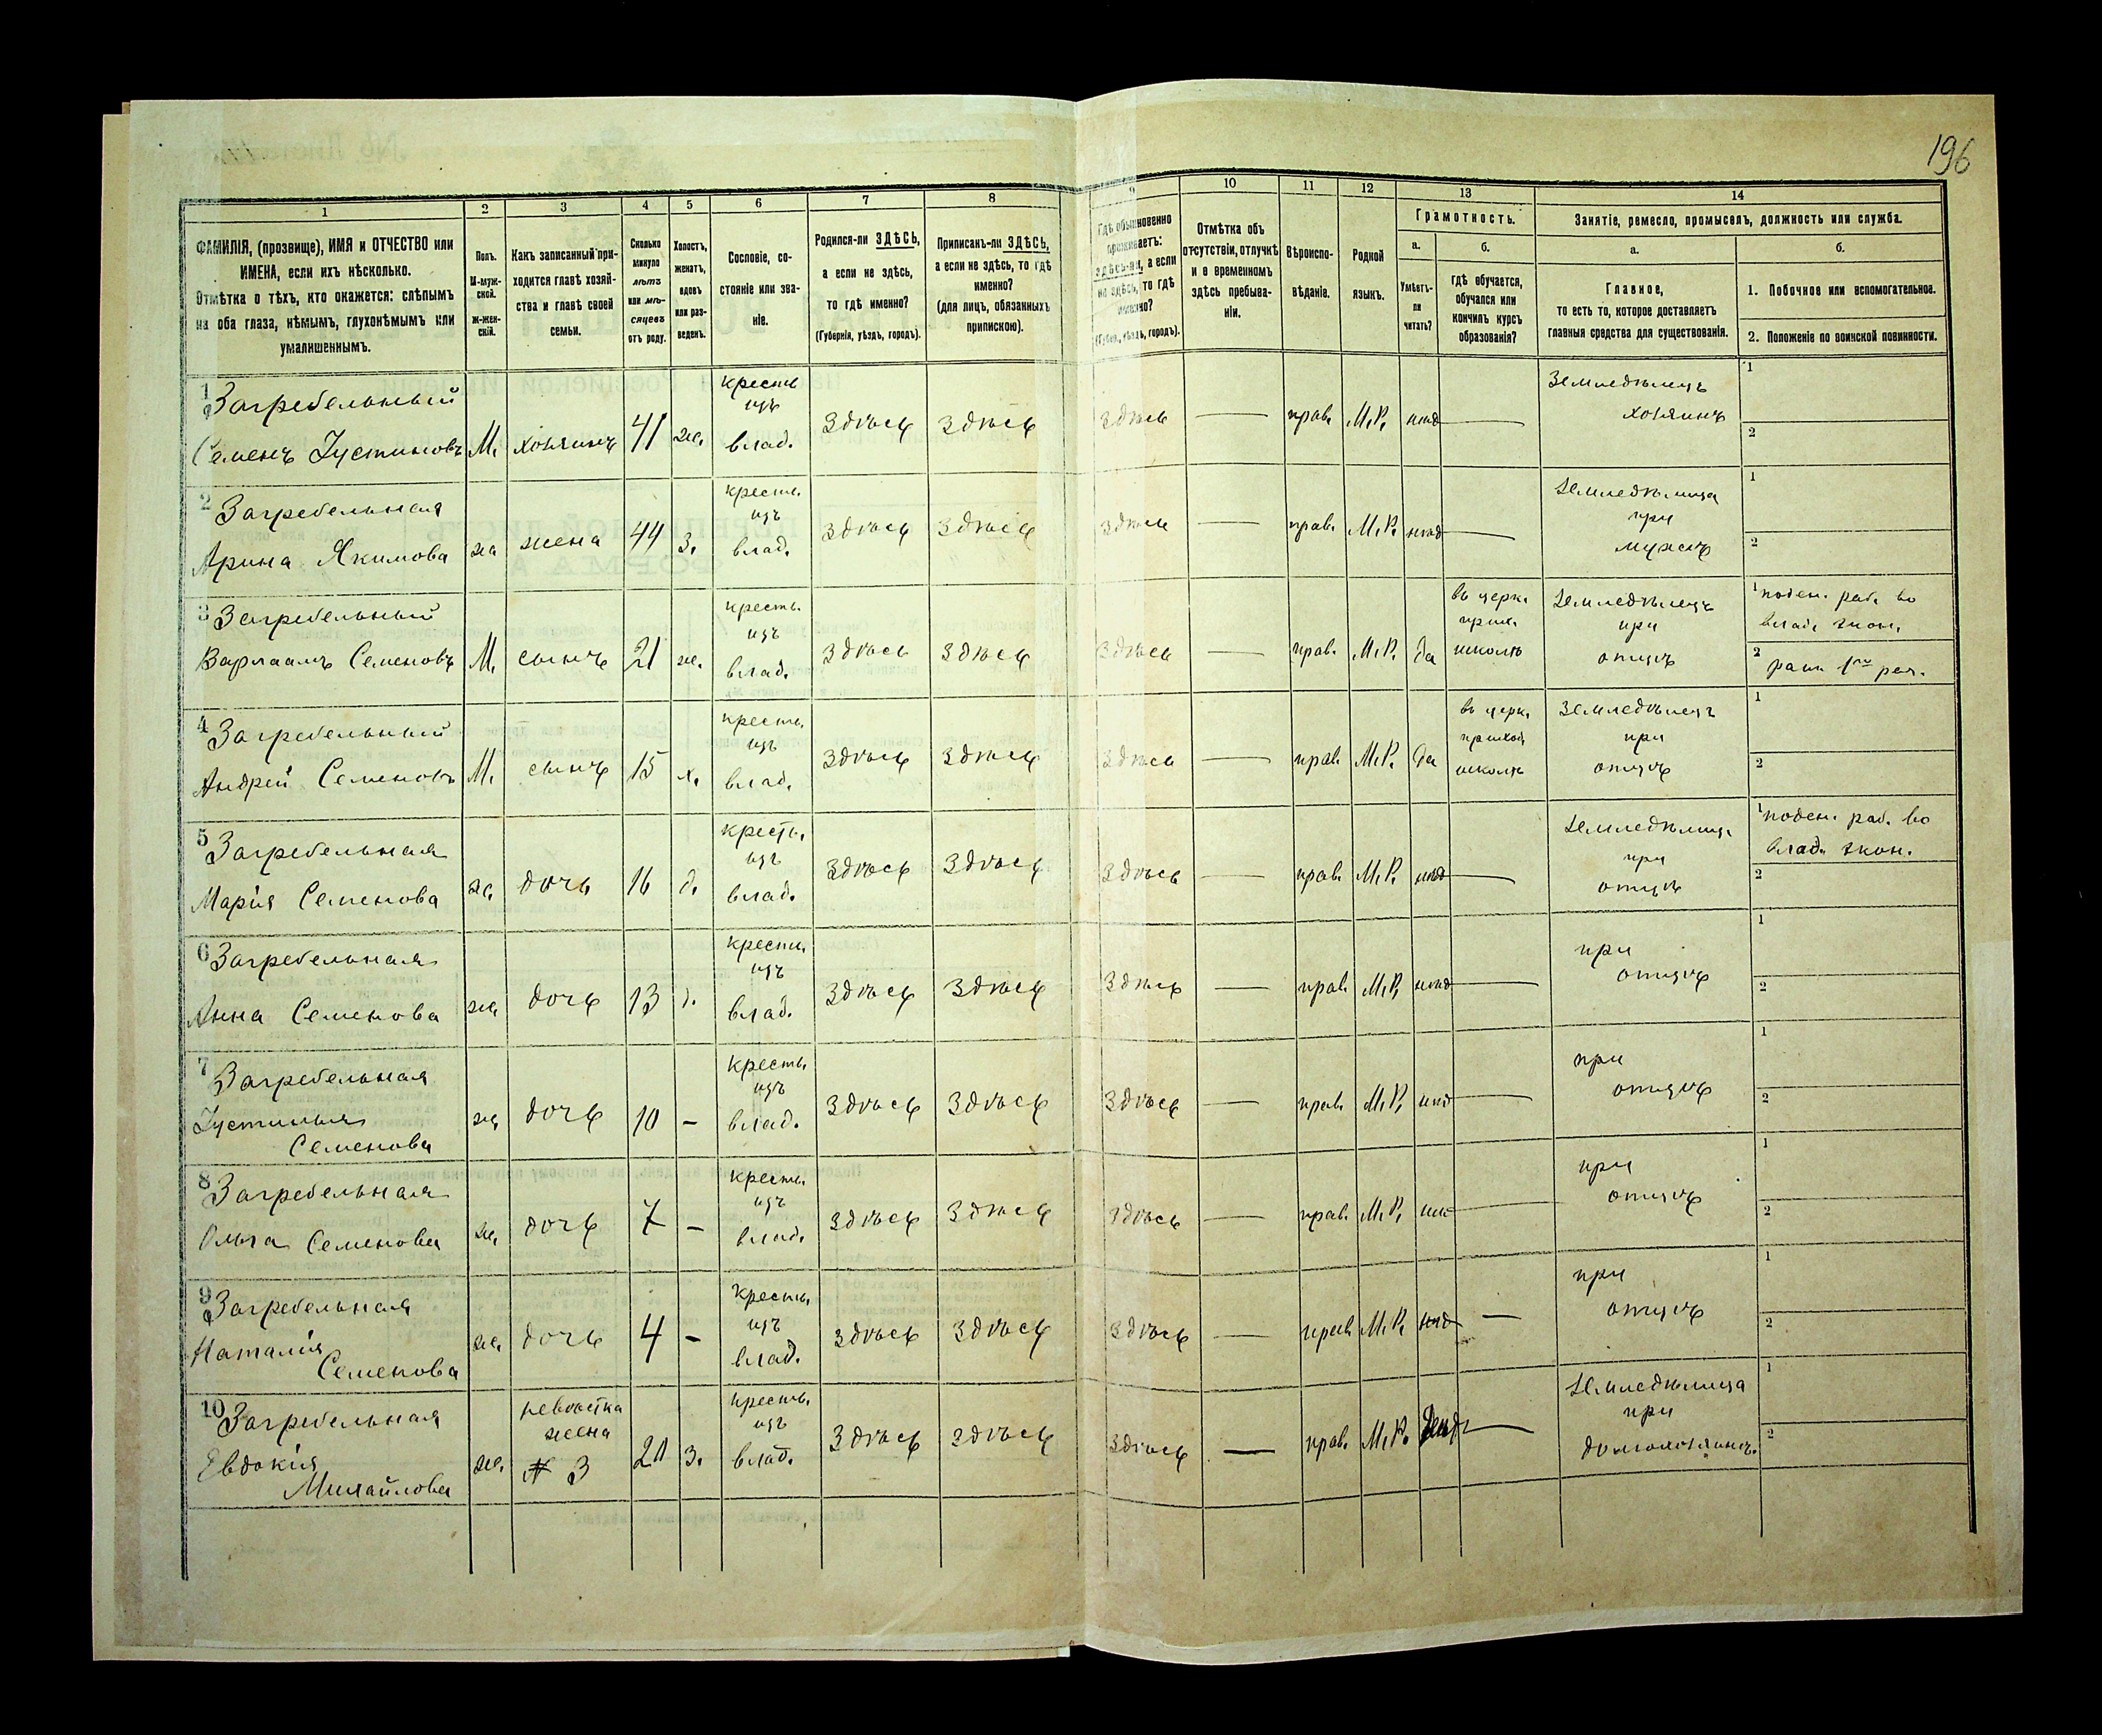 196
1 2 3 4 5 6 7 8 9 10 11 12 13 14
ФАМИЛІЯ, (прозвище), ИМЯ и ОТЧЕСТВО или
ИМЕНА, если ихъ нѣсколько.
Отмѣтка о тѣхъ, кто окажется: слѣпымъ
на оба глаза, нѣмымъ, глухонѣмымъ или
умалишеннымъ.
Полъ.
М-муж-
ской.
Ж-жен-
скій.
Какъ записанный при-
ходится главѣ хозяй-
ства и главѣ своей
семьи.
Сколько
минуло
лѣтъ
или мѣ-
сяцевъ
отъ роду.
Холостъ,
женатъ,
вдовъ
или раз-
веденъ.
Сословіе, со-
стояніе или зва-
ніе.
Родился-ли ЗДѢСЬ,
а если не здѣсь,
то гдѣ именно?
(Губернія, уѣздъ, городъ).
Приписанъ-ли ЗДѢСЬ,
а если не здѣсь, то гдѣ
именно?
(для лицъ, обязанныхъ
припискою).
Гдѣ обыкновенно
проживаетъ:
здѣсь-ли, а если
не здѣсь, то гдѣ
именно?
(Губерн., уѣздъ, городъ).
Отмѣтка объ
отсутствіи, отлучкѣ
и о временномъ
здѣсь пребыва-
ніи.
Вѣроиспо-
вѣданіе.
Родной
языкъ.
Грамотность.
а.
Умѣетъ-
ли
читать?
б.
Гдѣ обучается,
обучался или
кончилъ курсъ
образованія?
Занятіе, ремесло, промыселъ, должность или служба.
а.
Главное,
то есть то, которое доставляетъ
главныя средства для существованія.
б.
1. Побочное или вспомогательное.
2. Положеніе по воинской повинности.
1 Загребельный
Семенъ Іустиновъ
М. хозяинъ 41 ж.
крестъ
изъ
влад.
здѣсь здѣсь здѣсь — прав. М.Р. нѣт —
Земледѣлецъ
хозяинъ
1
2
2 Загребельная
Арина Якимова
ж жена 44 з.
крест.
изъ
влад.
здѣсь здѣсь здѣсь — прав. М.Р. нѣт —
Земледѣлица
при
мужѣ
1
2
3 Загребельный
Варлаамъ Семеновъ
М. сынъ 21 ж.
кресть.
изъ
влад.
здѣсь здѣсь здѣсь — прав. М.Р. да
въ церк.
прих.
школѣ
Земледѣлецъ
при
отцѣ
1 поден. раб. во
влад. экон.
2
4 Загребельный
Андрей Семеновъ
М. сынъ 15 х.
крест.
изъ
влад.
здѣсь здѣсь здѣсь — прав. М.Р. да
въ церк.
приход.
школѣ
Земледѣлецъ
при
отцѣ
1
2
5 Загребельная
Марія Семенова
ж. дочь 16 д.
кресть.
изъ
влад.
здѣсь здѣсь здѣсь — прав. М.Р. нѣт —
Земледѣлица
при
отцѣ
1 поден. раб. во
влад. экон.
2
6 Загребельная
Анна Семенова
ж. дочь 13 д.
крест.
изъ
влад.
здѣсь здѣсь здѣсь — прав. М.Р. нѣт —
при
отцѣ
1
2
7 Загребельная
Іустинья
Семенова
ж. дочь 10 -
кресть.
изъ
влад.
здѣсь здѣсь здѣсь — прав. М.Р. нѣт —
при
отцѣ
1
2
8 Загребельная
Ольга Семенова
ж. дочь 7 -
кресть.
изъ
влад.
здѣсь здѣсь здѣсь — прав. М.Р. —
при
отцѣ
1
2
9 Загребельная
Наталія
Семенова
ж. дочь 4 -
кресть.
изъ
влад.
здѣсь здѣсь здѣсь — прав. М.Р. нѣт —
при
отцѣ
1
2
10 Загребельная
Евдокія
Михайлова
ж.
невѣстка
жена
№ 3
з.
кресть.
изъ
влад.
здѣсь здѣсь здѣсь — прав. М.Р. —
Земледѣлица
при
домохозяинѣ.
1
2